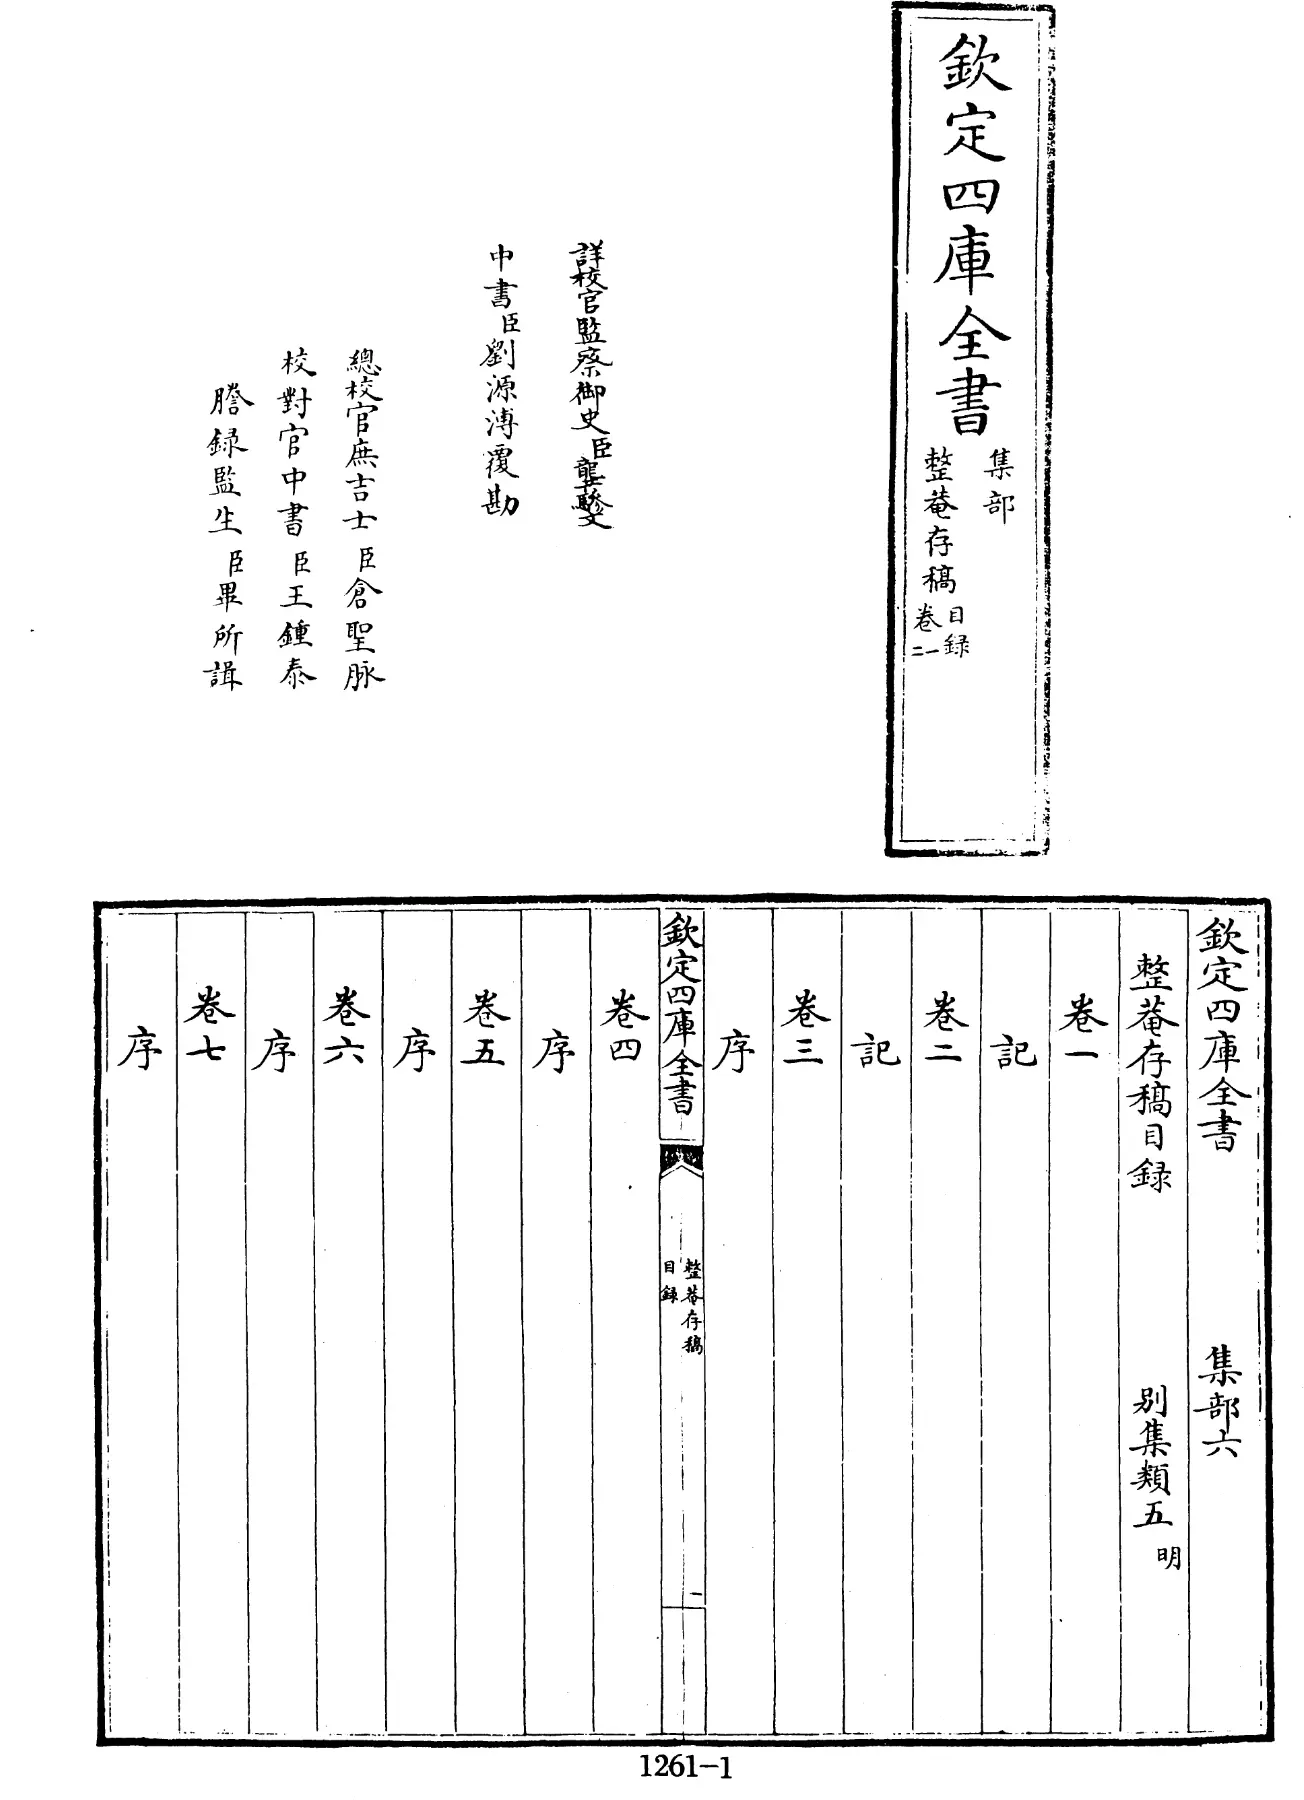 欽定四庫全書
集部
整菴存稿
目録
卷一
二
詳校官監察御史臣龔驂文
中書臣劉源溥覆勘
總校官庶吉士臣倉聖脉
校對官中書臣王鍾泰
謄録監生臣畢所諿
欽定四庫全書 集部六
整菴存稿目録 別集類五 明
卷一
記
卷二
記
卷三
序
欽定四庫全書
整菴存稿
目録
一
卷四
序
卷五
序
卷六
序
卷七
序
1261-1